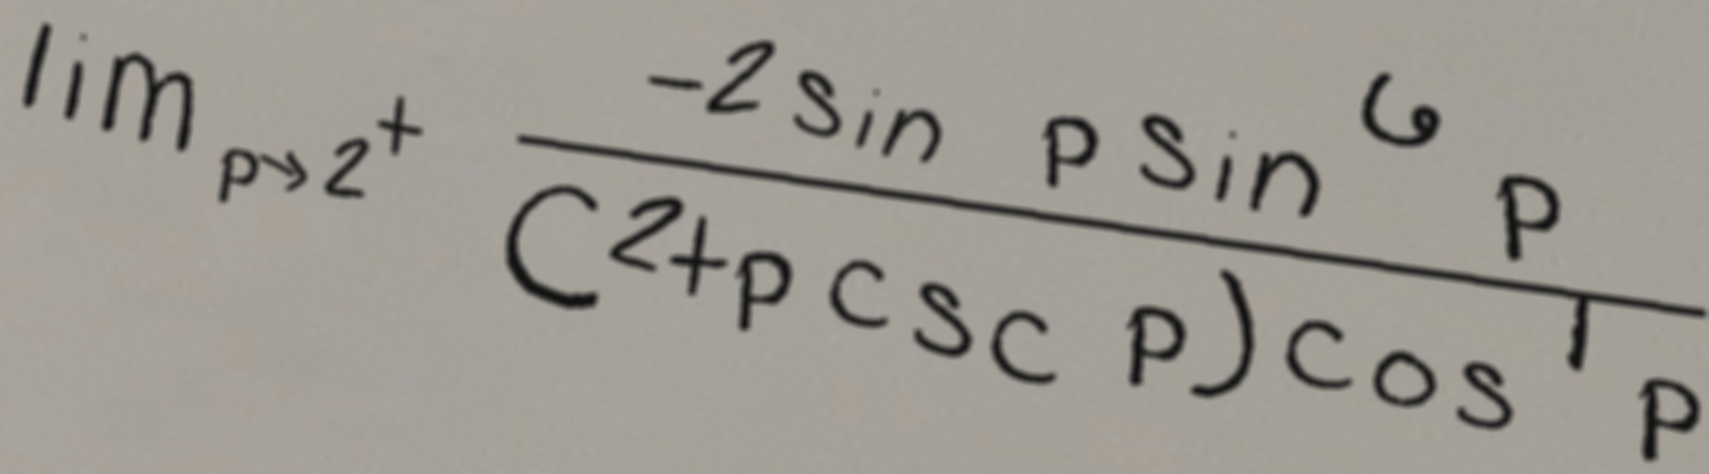 \lim_{p \to 2^+} \frac{-2 \sin p \sin^6 p}{(2 + p \csc p) \cos^1 p}